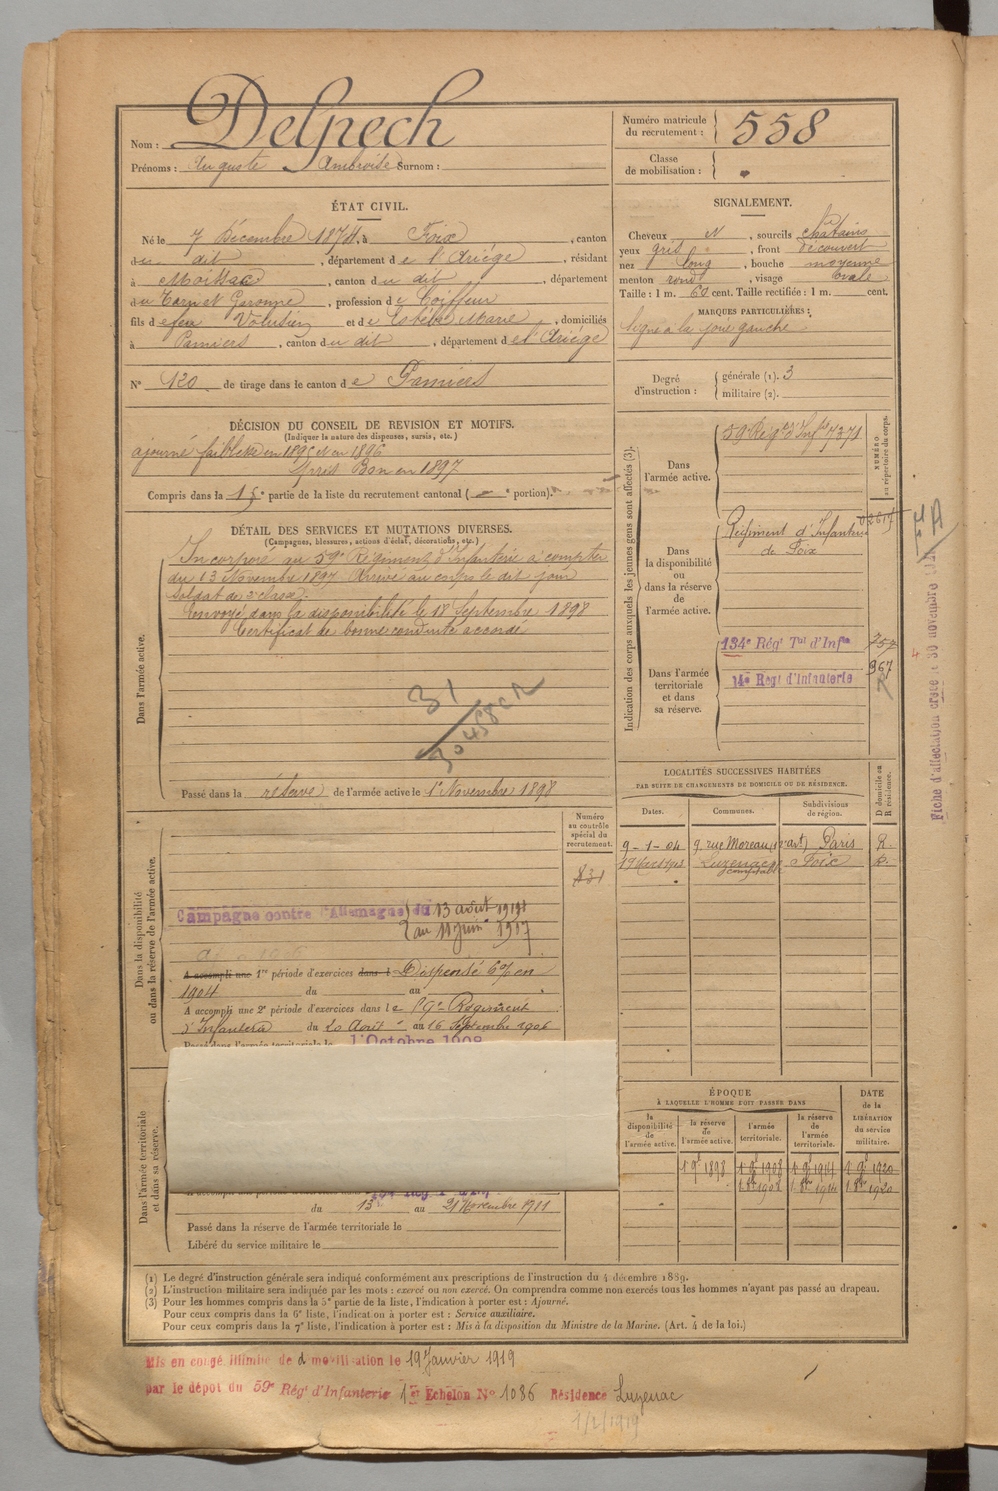 Nom : Delpech
Prénoms : Auguste Ambroise Surnom :
Numéro matricule du recrutement : 558
Classe de mobilisation :
ÉTAT CIVIL.
Né le 7 Décembre 1874, à Foix, canton
du dit, département de l'Ariège, résidant
à Moissac, canton du dit, département
du Tarn et Garonne, profession de Coiffeur
fils de feu Volusien et de Estèbe Marie, domiciliés
à Pamiers, canton du dit, département de l'Ariège
N° 120 de tirage dans le canton de Pamiers
SIGNALEMENT.
Cheveux N, sourcils châtains
yeux gris, front découvert
nez long, bouche moyenne
menton rond, visage ovale
Taille : 1 m. 60 cent. Taille rectifiée : 1 m. cent.
MARQUES PARTICULIÈRES :
Signe à la joue gauche
Degré d'instruction : générale (1). 3
militaire (2).
DÉCISION DU CONSEIL DE REVISION ET MOTIFS.
(Indiquer la nature des dispenses, sursis, etc.)
ajourné faiblesse en 1895 et en 1896
Pris Bon en 1897
Compris dans la 1e partie de la liste du recrutement cantonal ( — portion).
DÉTAIL DES SERVICES ET MUTATIONS DIVERSES.
(Campagnes, blessures, actions d'éclat, décorations, etc.)
Dans l'armée active.
Incorporé au 59e Régiment d'Infanterie à compter
du 13 Novembre 1897. Arrivé au corps le dit jour
Soldat de 2e classe.
Envoyé dans la disponibilité le 18 Septembre 1898
Certificat de bonne conduite accordé
31
Passé dans la réserve de l'armée active le 1er Novembre 1898
Indication des corps auxquels les jeunes gens sont affectés (3).
NUMÉRO au répertoire du corps.
Dans l'armée active.
59 Régt d'Infie 7371
Dans la disponibilité ou dans la réserve de l'armée active.
Régiment d'Infanterie
de Foix
Dans l'armée territoriale et dans sa réserve.
134e Régt Tal d'Infie 757
14e Regt d'Infanterie 367
R
Fiche d'affectation créée le 30 novembre
LOCALITÉS SUCCESSIVES HABITÉES
PAR SUITE DE CHANGEMENTS DE DOMICILE OU DE RÉSIDENCE.
Dates. Communes. Subdivisions de région. D domicile ou R résidence.
9-1-04 9, rue Moreau Paris R.
Luzenac Foix
Numéro au contrôle spécial du recrutement.
Dans la disponibilité ou dans la réserve de l'armée active.
Campagne contre l'Allemagne du 13 août 1914
au 11 Juin 1917
A accompli une 1re période d'exercices dans l Dispensé 6% en
1904 du au
A accompli une 2e période d'exercices dans le 59e Régiment
d'Infanterie du 20 Août au 16 Septembre 1906
Passé dans l'armée territoriale le 1 Octobre 1908
Dans l'armée territoriale et dans sa réserve.
du 13 au 21 Novembre 1911
Passé dans la réserve de l'armée territoriale le
Libéré du service militaire le
ÉPOQUE
À LAQUELLE L'HOMME DOIT PASSER DANS
la disponibilité de l'armée active. la réserve de l'armée active. l'armée territoriale. la réserve de l'armée territoriale.
DATE de la LIBÉRATION du service militaire.
1 9e 1898 1 9e 1908 1 9e 1914 1 9e 1920
1 8bre 1908 1 8bre 1914 1 8bre 1920
(1) Le degré d'instruction générale sera indiqué conformément aux prescriptions de l'instruction du 4 décembre 1889.
(2) L'instruction militaire sera indiquée par les mots : exercé ou non exercé. On comprendra comme non exercés tous les hommes n'ayant pas passé au drapeau.
(3) Pour les hommes compris dans la 5e partie de la liste, l'indication à porter est : Ajourné.
Pour ceux compris dans la 6e liste, l'indication à porter est : Service auxiliaire.
Pour ceux compris dans la 7e liste, l'indication à porter est : Mis à la disposition du Ministre de la Marine. (Art. 4 de la loi.)
Mis en congé illimité de démobilisation le 19 Janvier 1919
par le dépôt du 59e Régt d'Infanterie 1er Echelon N° 1036 Résidence Luzenac
1/2/1919